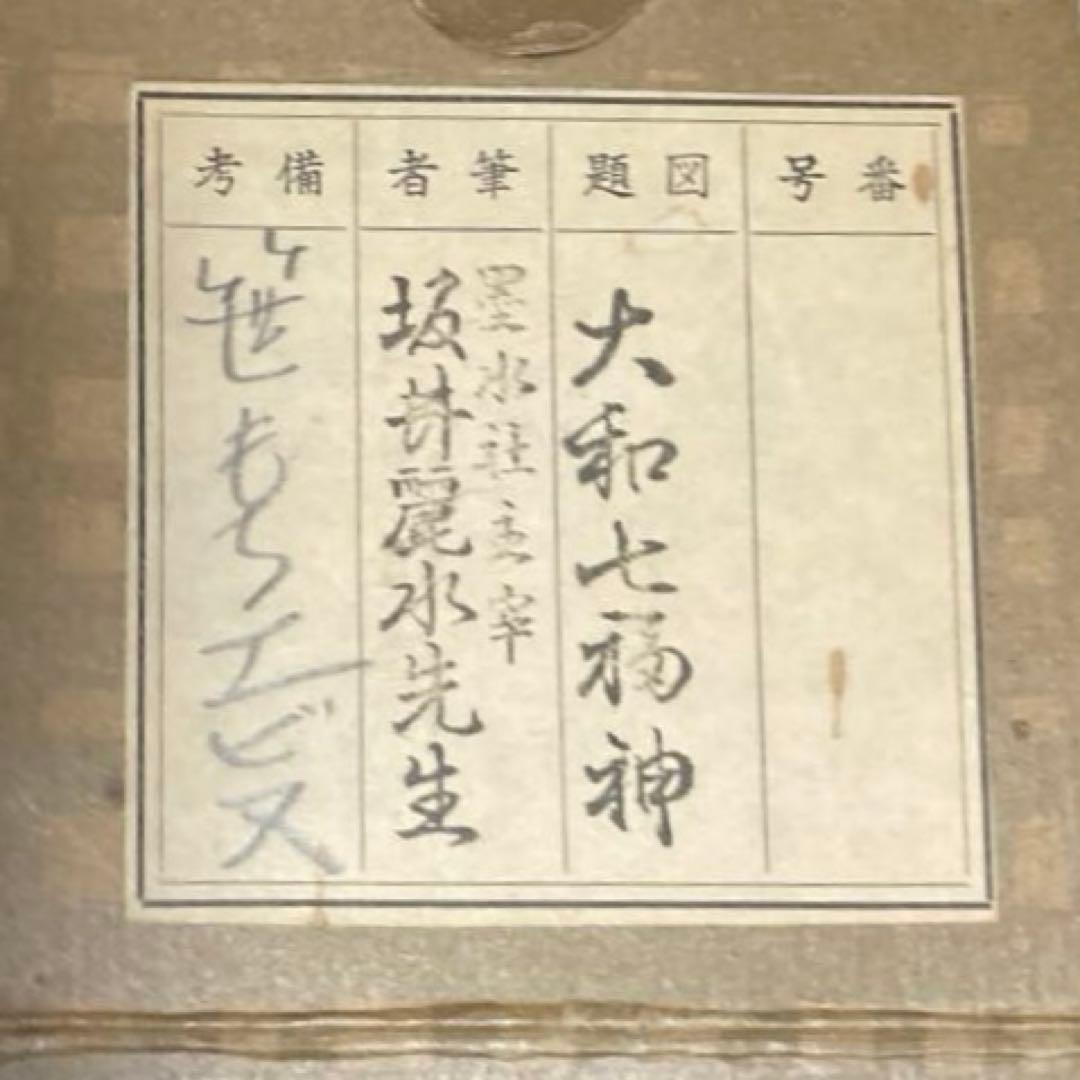 番号
図題
大和七福神
筆者
墨水社主宰
坂井麗水先生
備考
笹もちエビス